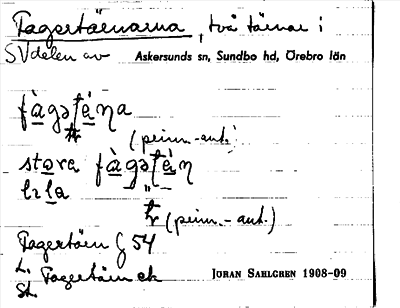 Fagertärnarna, två tärnar i
SV delen av Askersunds sn, Sundbo hd, Örebro län
fàgətä́ɳa
(prim.-ant.)
stora fàgətä́ɳ
lɩla
(prim.-ant.)
Fagertärn G 54
L. Fagertärn ek
St.
JÖRAN SAHLGREN 1908-09